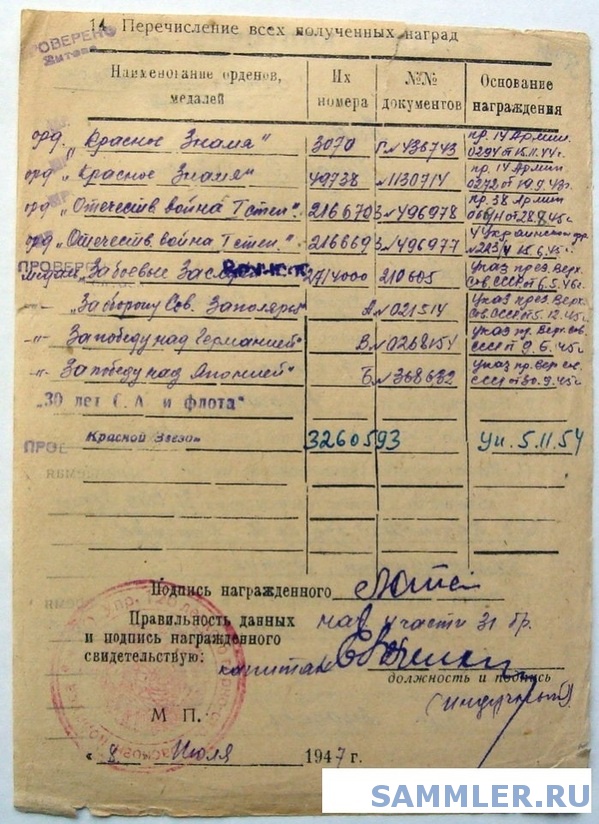 14 Перечисление всех полученных наград
ПРОВЕРЕНО
Наименование орденов, медалей Их номера №№ документов Основание награждения
орд. „Красное Знамя" 3070 Г №436743 пр. 14 Армии 0294 от 15.11.44г.
орд „Красное Знамя" 49738 №1130714 пр. 14 Армии 0272 от 19.9.43г.
орд „Отечеств. война I степ". 216670 З №496978 пр. 38 Армии от 28.8.45г.
орд „Отечеств. война I степ." 216669 З №496977 4 Украинский фр.
ПРОВЕРЕ
медаль „За боевые Заслуги" 2714000 210605 Указ през. Верх. Сов. СССР от 6.5.46г
-"- „За оборону Сов. Заполярья" А №021514 Указ През. Верх. Сов. СССР от 5.12.45г
-"- За победу над Германией" В №0268154 Указ пр. Верх. Сов. СССР от 9.5.45г
-"- За победу над Японией" Б №368632 Указ пр. Вер СССР от 30.9.45г
„30 лет С.А. и флота"
ПРОВ
Красной Звезды 3260593 Ук. 5.11.54
Подпись награжденного
Правильность данных нач. 4 части 31 бр.
и подпись награжденного
свидетельствую: капитан
должность и подпись
М П.
« 8 » Июля 1947 г.
SAMMLER.RU